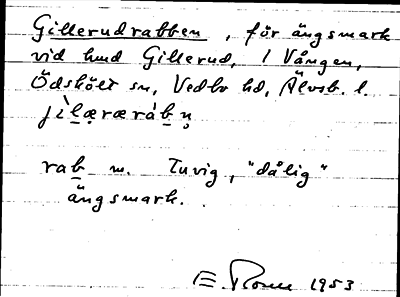 Gillerudrabben, för ängsmark
vid hmd Gillerud, 1 Vången,
Ödskölt sn, Vedbo hd, Älvsb. l.
jìlæræráḇṇ
rab̲ m. tuvig, "dålig"
ängsmark.
E. 1953